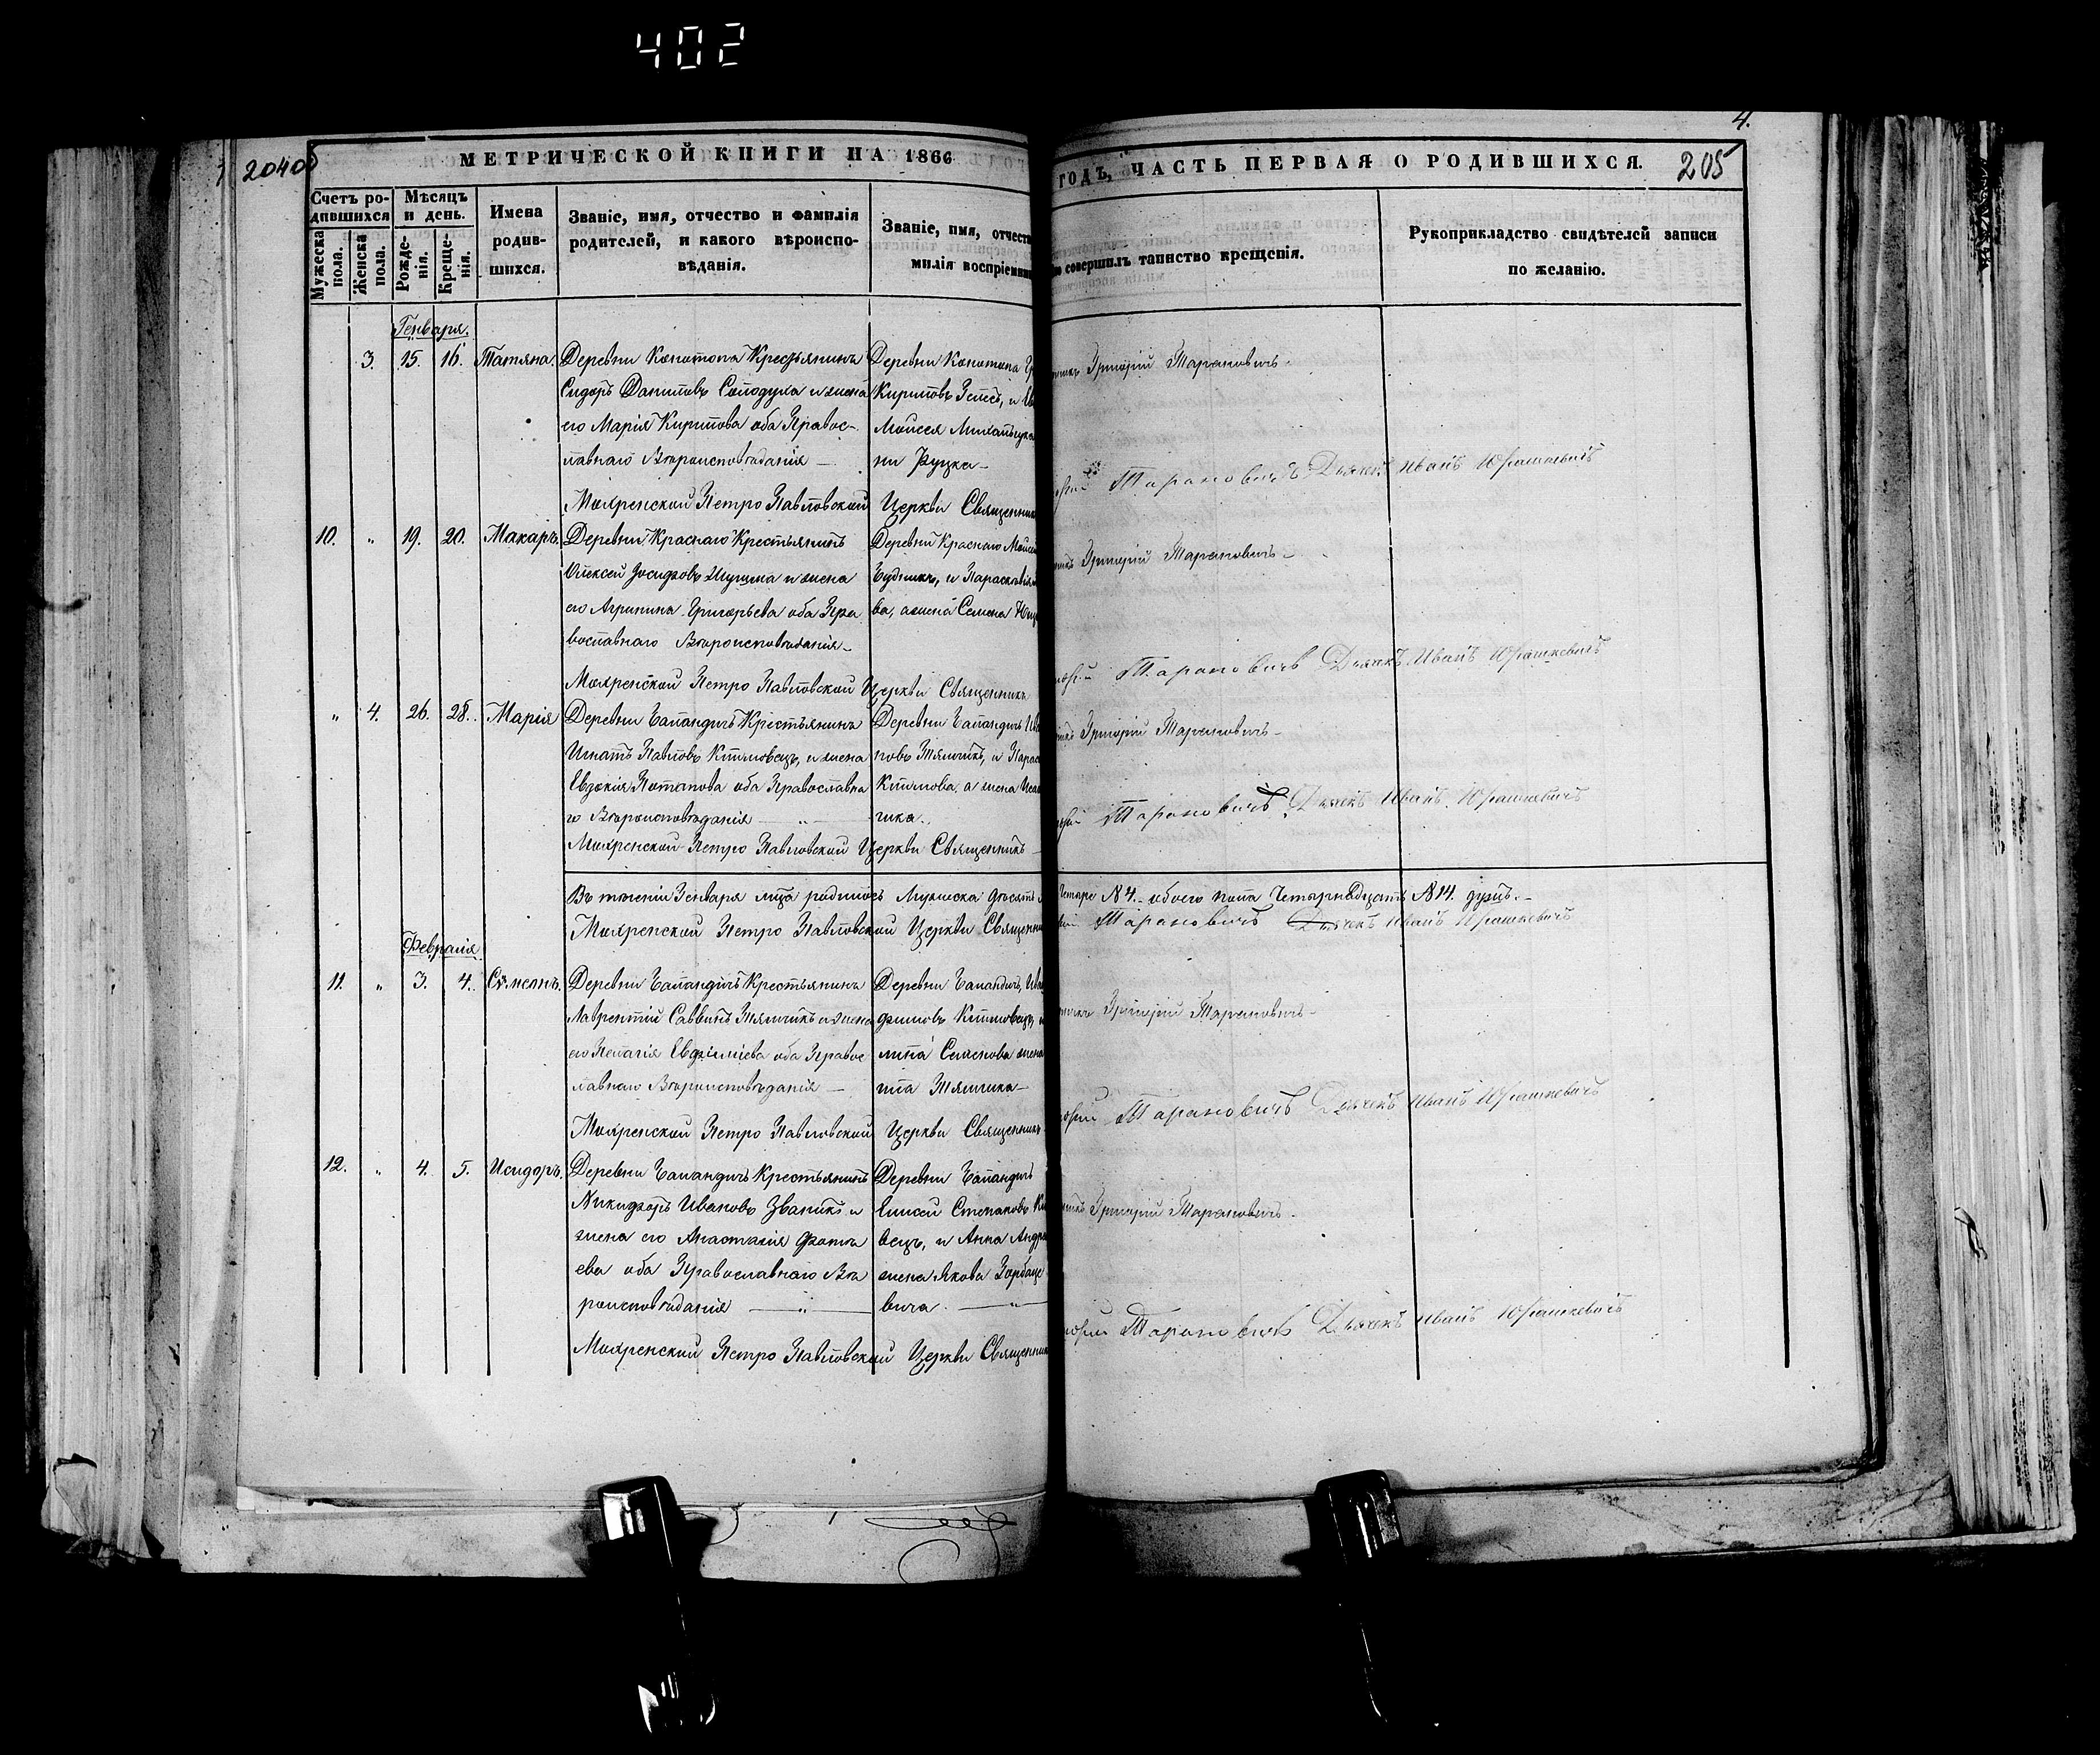 402
4.
204об
МЕТРИЧЕСКОЙ КНИГИ НА 1866
ГОДЪ, ЧАСТЬ ПЕРВАЯ О РОДИВШИХСЯ.
205
Счетъ родившихся
Мужеска пола.
Женска пола.
Мѣсяцъ и день.
Рожденія.
Крещенія.
Имена родившихся.
Званіе, имя, отчество и фамилія
родителей, и какого вѣроиспо-
вѣданія.
Званіе, имя, отчест
милія воспріемни
совершилъ таинство крещенія.
Рукоприкладство свидѣтелей записи
по желанію.
Генваря.
3. 15. 16. Татяна.
Деревни Конотопа Крестьянинъ
Сидоръ Даниловъ Солодуха и жена
его Марія Кирилова оба Правос-
лавнаго Вѣроисповѣданія
Деревни Конотопа
Кириловъ и
Моисея
ни Руцка
Григорій Тарановичъ
Мохренской Петро Павловской Церкви Священник
Тарановичъ Дьячекъ Иванъ Юрашкевичъ
10. " 19. 20. Макаръ.
Деревни Краснаго Крестьянинъ
Алексей Іосифовъ и жена
его Агрипина Григорьева оба Пра
вославнаго Вѣроисповѣданія
Деревни Краснаго
Будникъ, и Параскевія
ва, жена Семена
Григорій Тарановичъ
Мохренской Петро Павловской Церкви Священникъ
Тарановичъ Дьячекъ Иванъ Юрашкевичъ
" 4. 26. 28. Марія
Деревни Баландичъ Крестьянинъ
Игнатъ Павловъ Климовецъ, и жена
Евдокія Потапова оба Православна
го Вѣроисповѣданія
Деревни Баландичъ
новъ и
Климова, а жена
чика.
Григорій Тарановичъ
Мохренской Петро Павловской Церкви Священникъ
Тарановичъ Дьячекъ Иванъ Юрашкевичъ
Въ теченіи Генваря родилось Мужеска десять
Четыре №4. обоего пола Четырнадцать №14. душъ.
Мохренской Петро Павловской Церкви Священни
Тарановичъ Дьячекъ Иванъ Юрашкевичъ
Февраля
11. " 3. 4. Сѵмеонъ.
Деревни Баландичъ Крестьянинъ
Лаврентій Саввинъ и жена
его Пелагія оба Правос
лавнаго Вѣроисповѣданія
Деревни Баландичъ,
Климовецъ,
Семенова жена
Григорій Тарановичъ
Мохренской Петро Павловской Церкви Священникъ
Тарановичъ Дьячекъ Иванъ Юрашкевичъ
12. " 4. 5. Исидоръ.
Деревни Баландичъ Крестьянинъ
Никифоръ Ивановъ и
жена его Анастасія
ева оба Православнаго Вѣ
роисповѣданія
Деревни Баландичъ
Елисей Степановъ
вецъ, и Анна
жена Якова Горбаце
вича.
Григорій Тарановичъ
Мохренской Петро Павловской Церкви Священник
Тарановичъ Дьячекъ Иванъ Юрашкевичъ